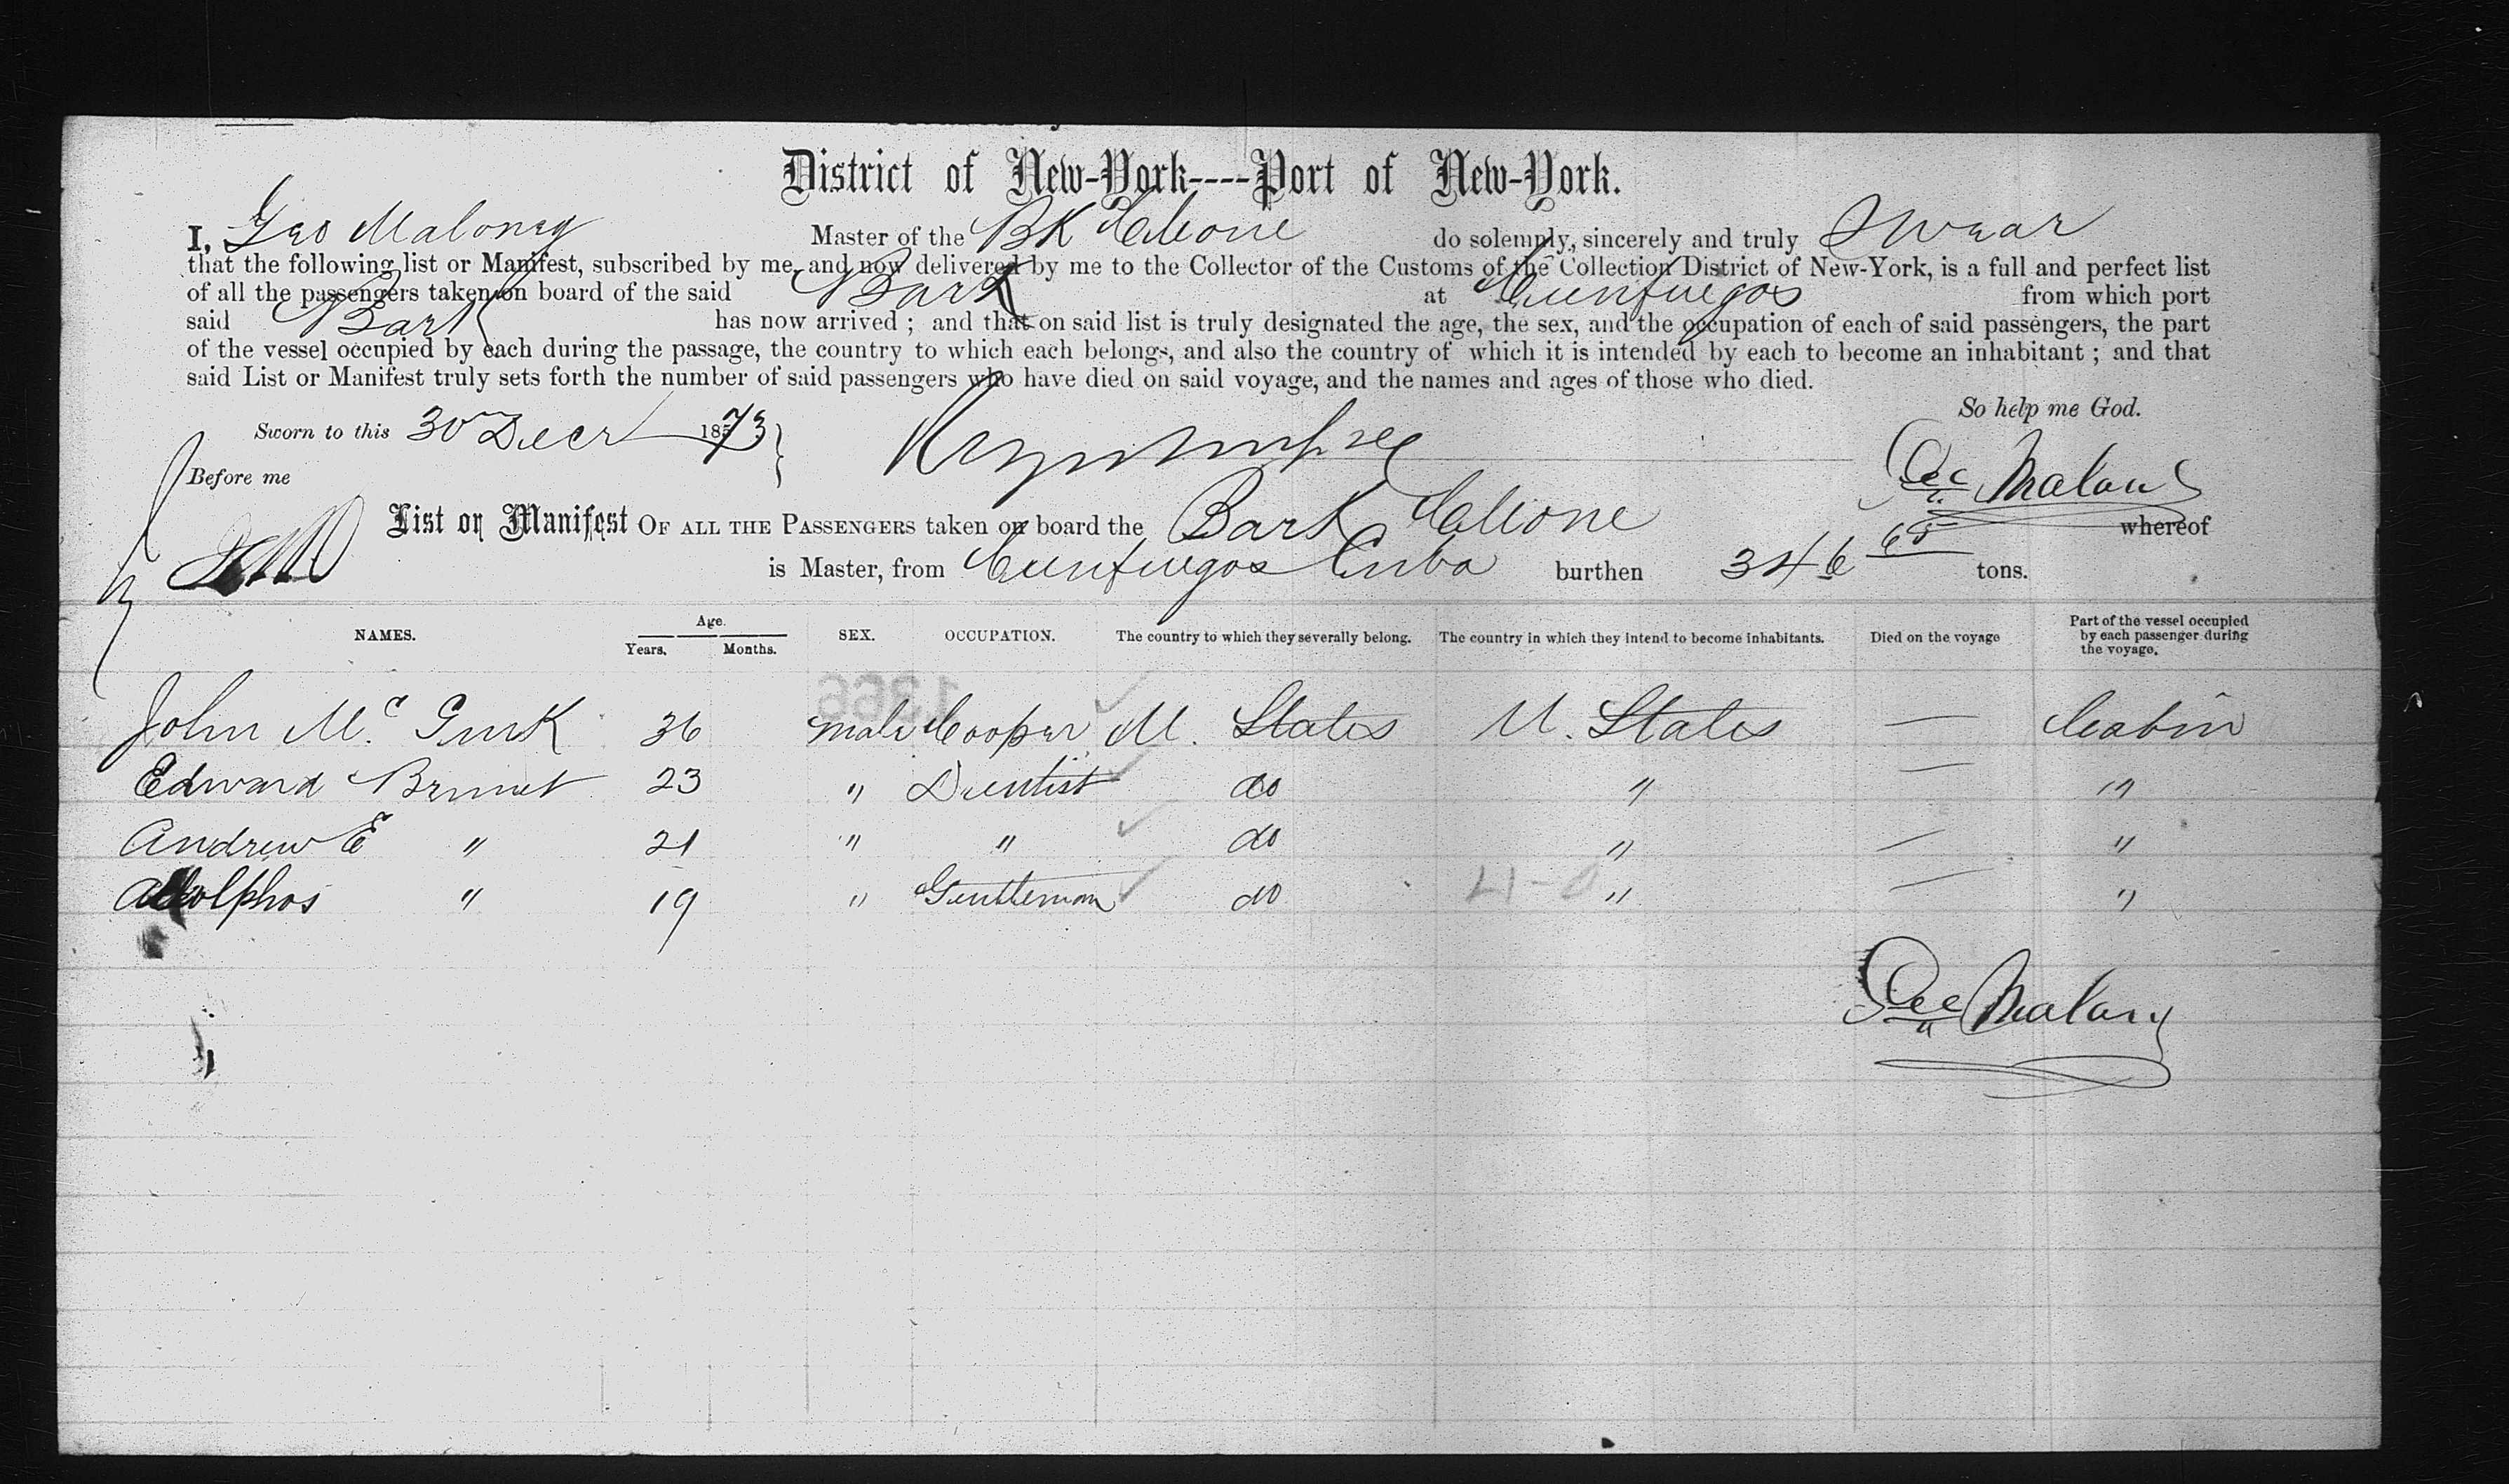 District of New-York----Port of New-York.
I, Geo Maloney Master of the BK Clione do solemnly, sincerely and truly Swear
that the following list or Manifest, subscribed by me, and now delivered by me to the Collector of the Customs of the Collection District of New-York, is a full and perfect list
of all the passengers taken on board of the said Bark at Cienfuegos from which port
said Bark has now arrived ; and that on said list is truly designated the age, the sex, and the occupation of each of said passengers, the part
of the vessel occupied by each during the passage, the country to which each belongs, and also the country of which it is intended by each to become an inhabitant ; and that
said List or Manifest truly sets forth the number of said passengers who have died on said voyage, and the names and ages of those who died.
So help me God.
Sworn to this 30 Decr 1873
Before me
Geo Malony
List or Manifest OF ALL THE PASSENGERS taken on board the Bark Clione whereof
is Master, from Cienfuegos Cuba burthen 346 68 tons.
NAMES. Age. Years. Months. SEX. OCCUPATION. The country to which they severally belong. The country in which they intend to become inhabitants. Died on the voyage Part of the vessel occupied by each passenger during the voyage.
1366
John Mc Gurk 36 male Cooper U. States U. States — Cabin
Edward Brunet 23 " Dentist do " — "
Andrew E " 21 " " do " — "
Adolphos " 19 " Gentleman do " — "
Geo Malony